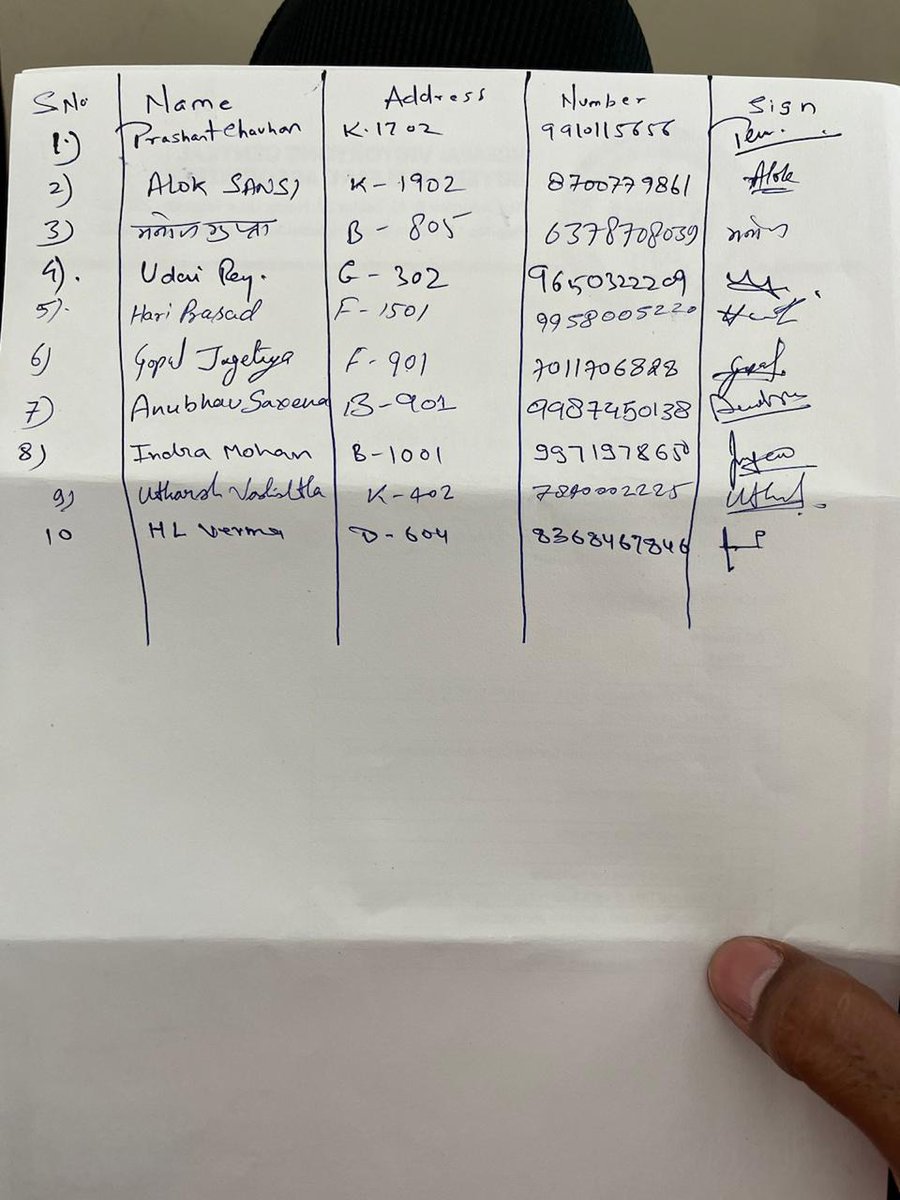 S No Name Address Number Sign
1.) Prashant Chauhan K-1702 9910115656
2) ALOK SANSI K-1902 8700779861 Alok
3) मनोज गुप्ता B-805 6378708039 मनोज
4). Udai G-302 9650322209
5). Hari Prasad F-1501 9958005220
6) Gopal Jagetiya F-901 7011706828 Gopal
7) Anubhav Saxena B-901 9987450138
8) Indra Mohan B-1001 9971978650
9) Utkarsh K-402 7840002225
10 HL Verma D-604 8368467846